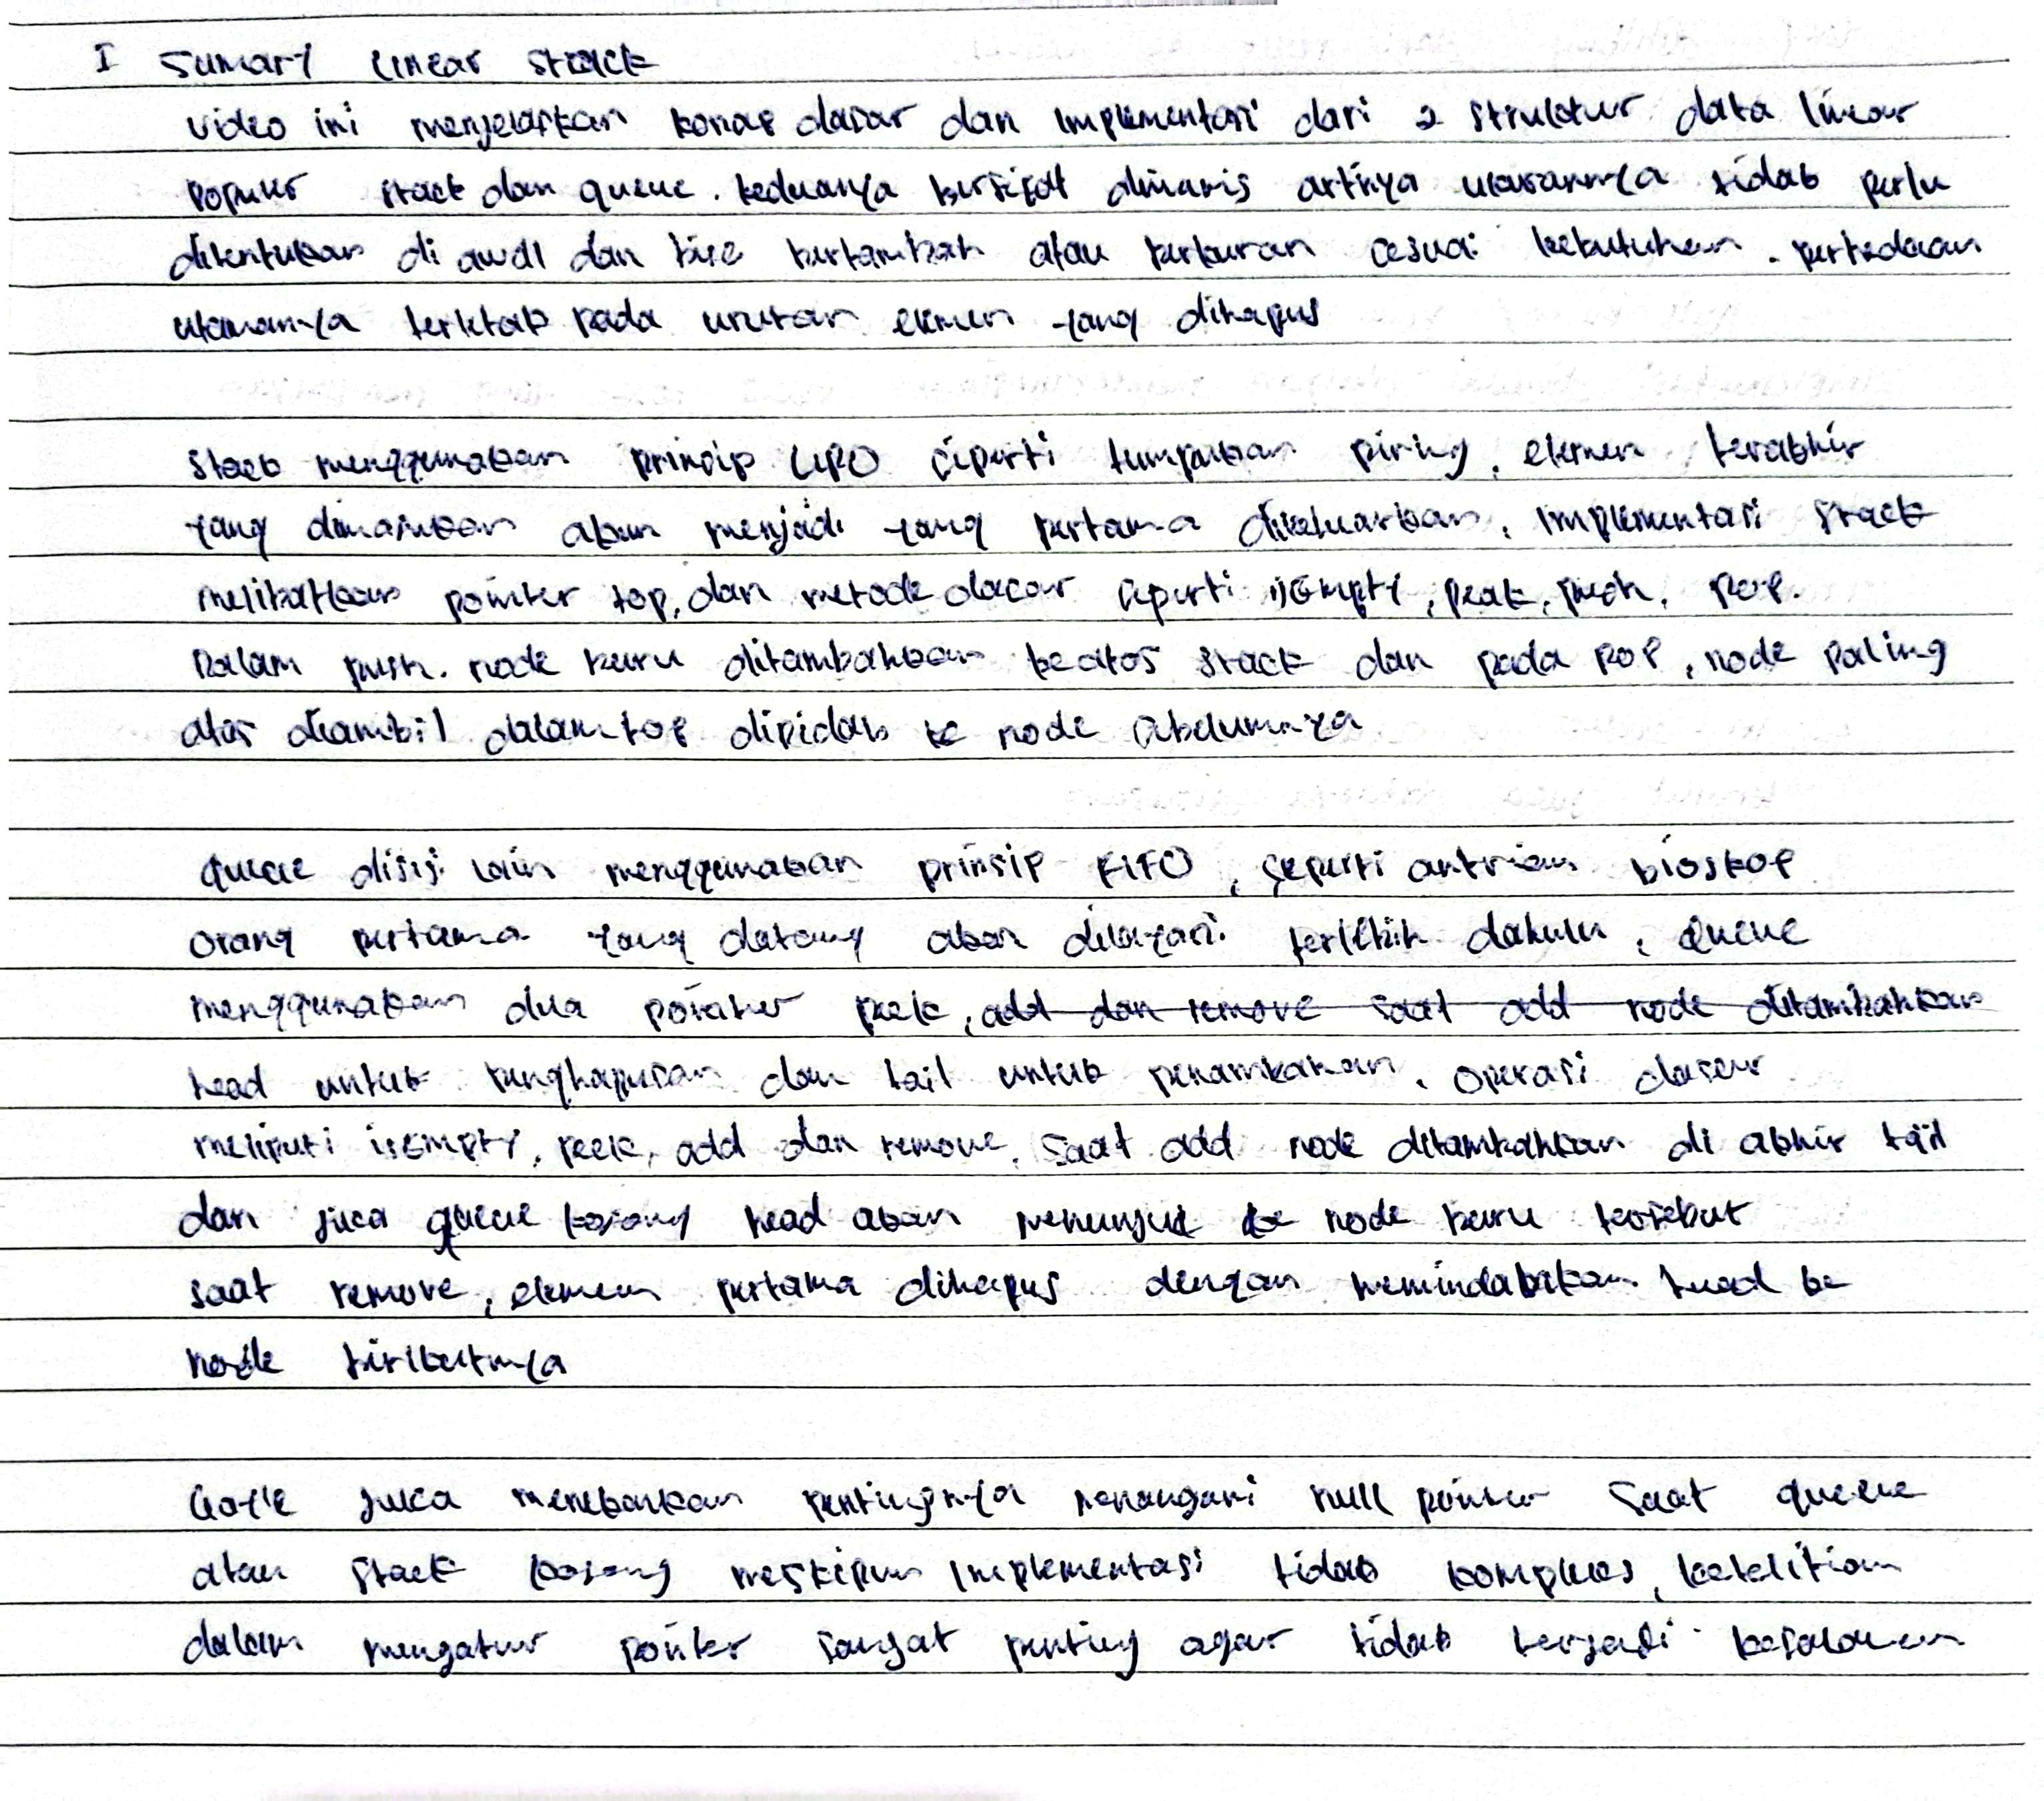 I Sumary linear stack
video ini menjelaskan konsep dasar dan implementasi dari 2 struktur data linear
populer stack dan queue. keduanya bersifat dinamis artinya ukurannya tidak perlu
ditentukan di awal dan bisa bertambah atau berkuran sesuai kebutuhan. perbedaan
utamanya terletak pada urutan elemen yang dihapus
stack menggunakan prinsip LIFO seperti tumpukan piring, elemen terakhir
yang dimasukan akan menjadi yang pertama dikeluarkan, implementasi stack
melibatkan pointer top, dan metode dasar seperti isEmpty, peak, push, pop.
Dalam push. node baru ditambahkan ke atas stack dan pada pop, node paling
atas diambil dalam top dipidah ke node sebelumnya
Queue disisi lain menggunakan prinsip FIFO, seperti antrian bioskop
orang pertama yang datang akan dilayani terlebih dahulu, Queue
menggunakan dua pointer peek, add dan remove saat add node ditambahkan
head untuk penghapusan dan tail untuk penambahan, operasi dasar
meliputi isEmpty, peek, add dan remove. saat add node ditambahkan di akhir tail
dan juca queue kosong head akan menunjuk ke node baru tersebut
saat remove, elemen pertama dihapus dengan memindahkan head ke
node
juca menekankan pentingnya menangani null pointer saat queue
atau stack kosong meskipun implementasi tidak kompleks, ketelitian
dalam mengatur pointer sangat penting agar tidak terjadi kesalahan